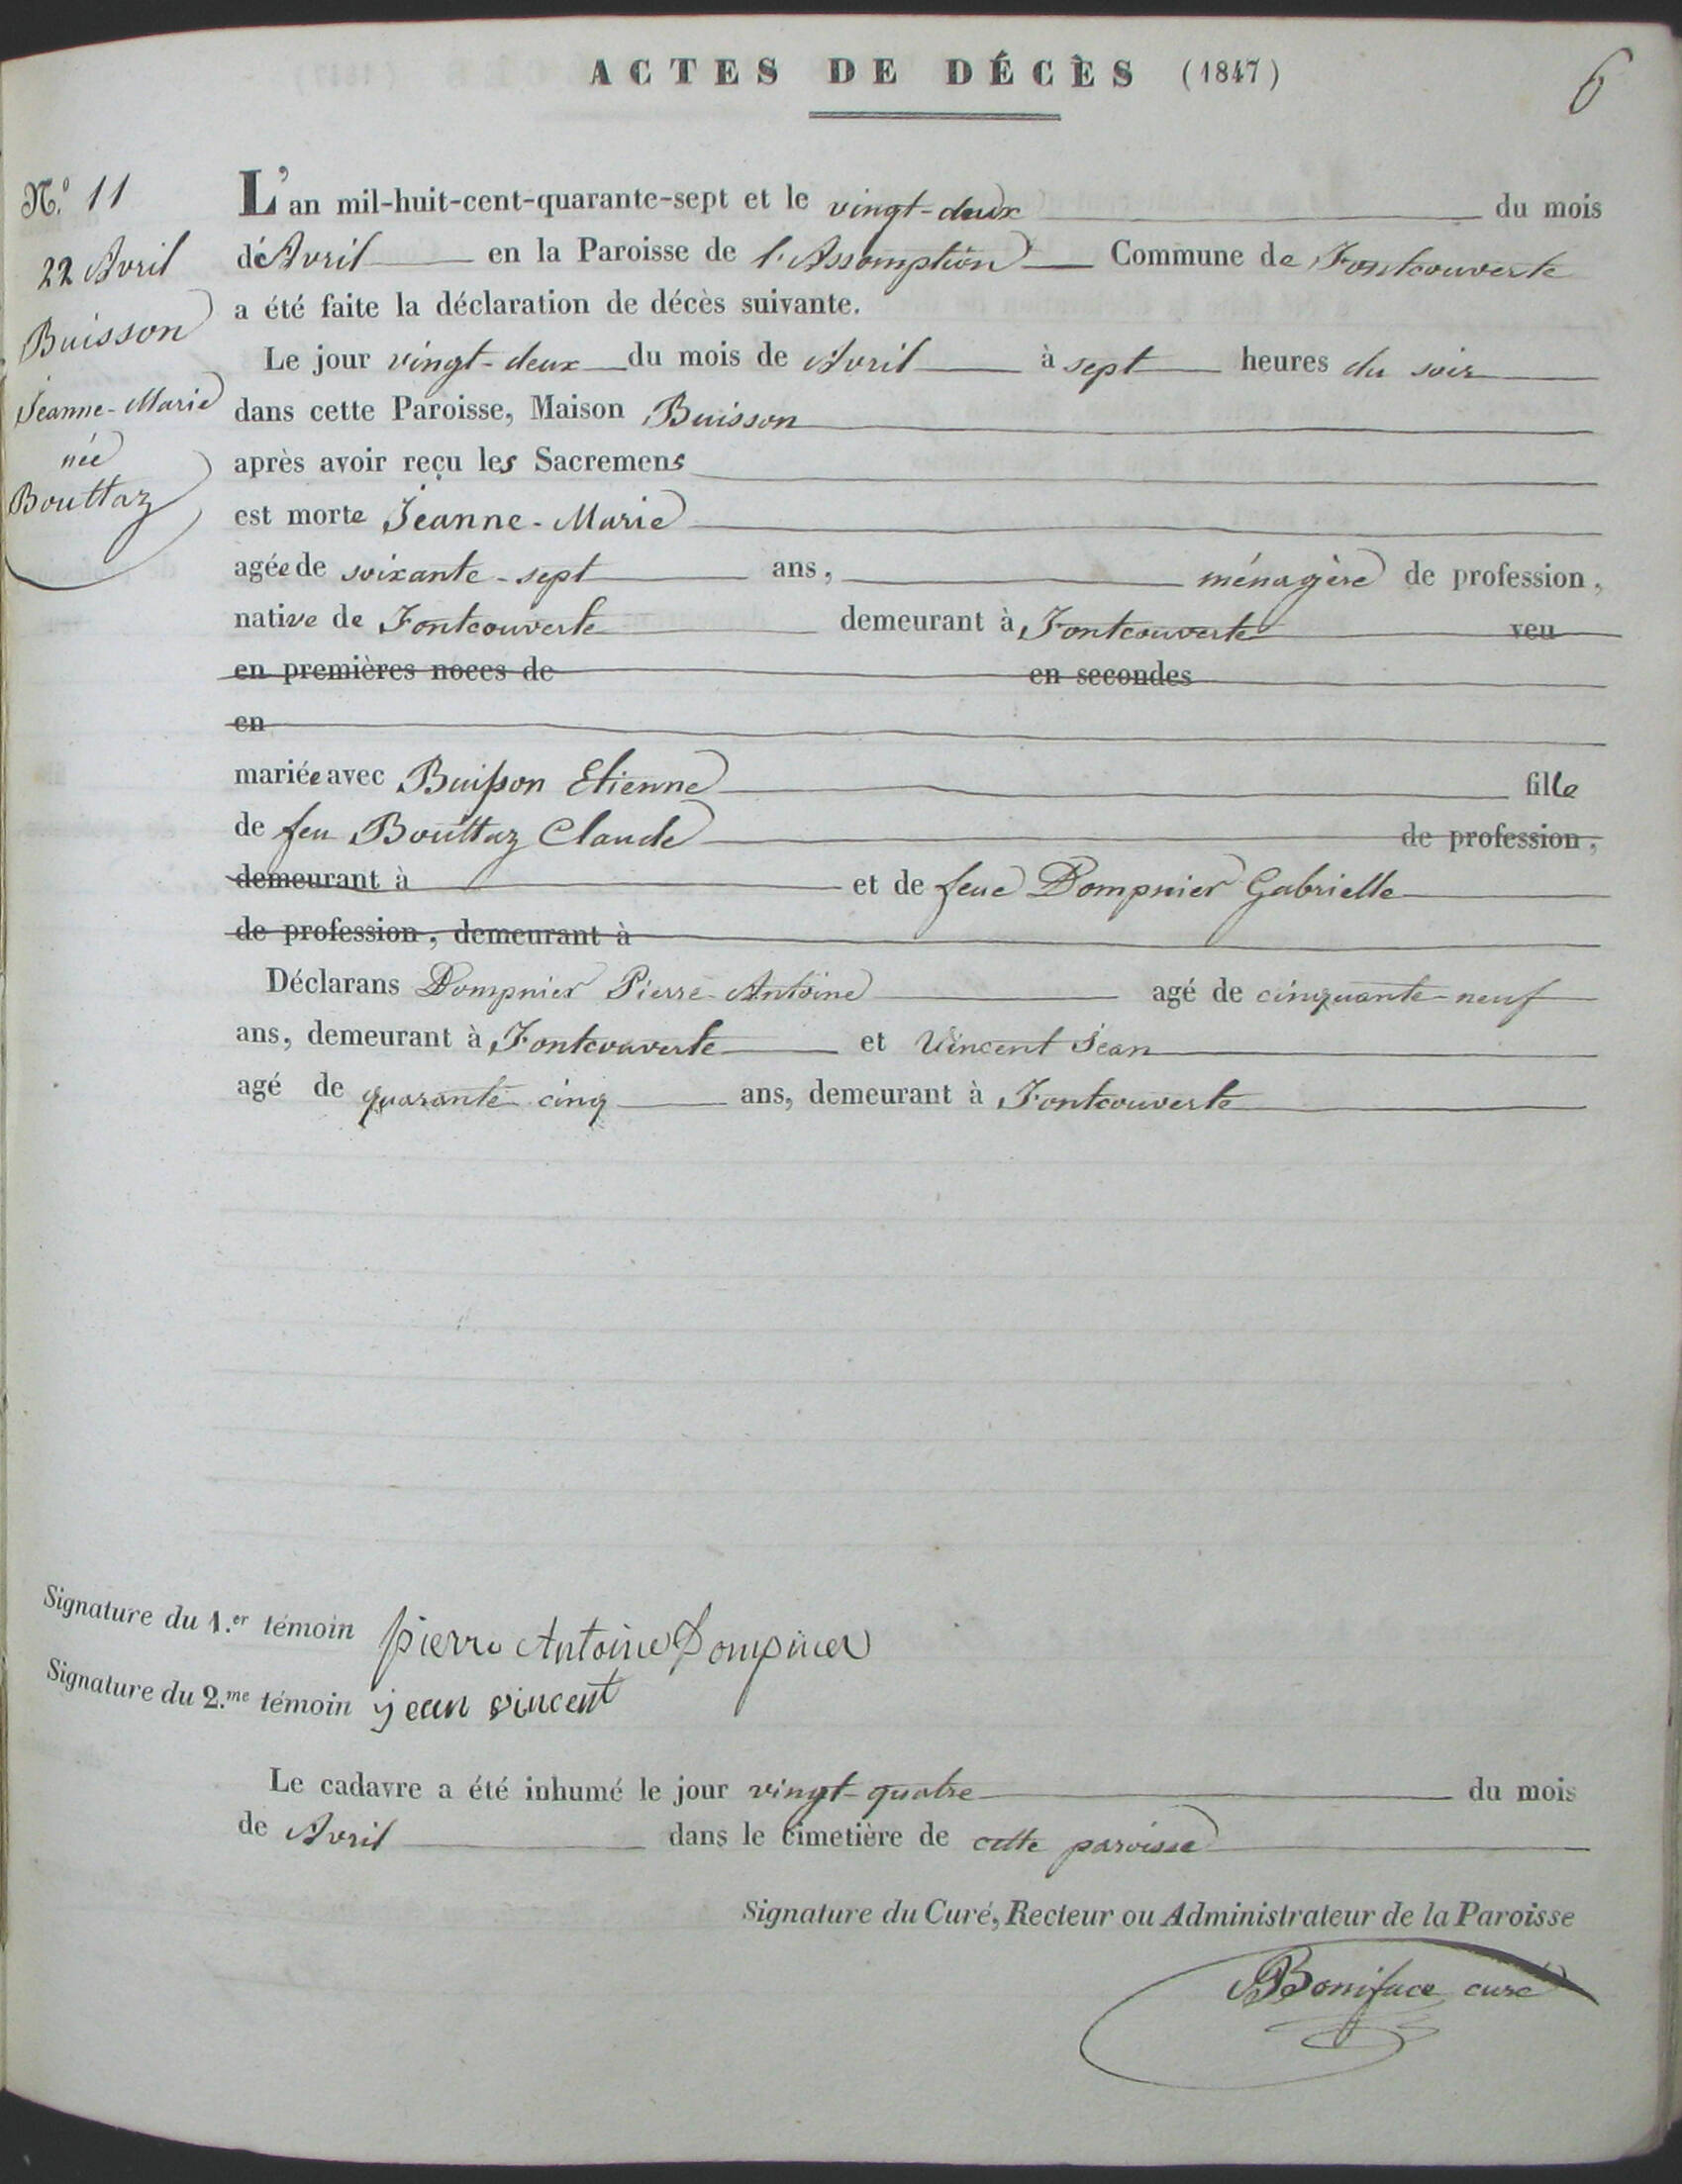 ACTES DE DÉCÈS (1847)
6
N.º 11
22 Avril
Buisson
Jeanne-Marie
née
Bouttaz
L'an mil-huit-cent-quarante-sept et le vingt-deux du mois
d'Avril en la Paroisse de l'Assomption Commune de Fontcouverte
a été faite la déclaration de décès suivante.
Le jour vingt-deux du mois de Avril à sept heures du soir
dans cette Paroisse, Maison Buisson
après avoir reçu les Sacremens
est morte Jeanne-Marie
agée de soixante-sept ans, ménagère de profession,
native de Fontcouverte demeurant à Fontcouverte veu
en premières noces de en secondes
en
mariée avec Buisson Etienne fille
de feu Bouttaz Claude de profession,
demeurant à et de feue Dompnier Gabrielle
de profession, demeurant à
Déclarans Dompnier Pierre-Antoine agé de cinquante-neuf
ans, demeurant à Fontcouverte et Vincent Jean
agé de quarante-cinq ans, demeurant à Fontcouverte
Signature du 1.er témoin pierre Antoine Dompnier
Signature du 2.me témoin jean vincent
Le cadavre a été inhumé le jour vingt-quatre du mois
de Avril dans le cimetière de cette paroisse
Signature du Curé, Recteur ou Administrateur de la Paroisse
Boniface curé